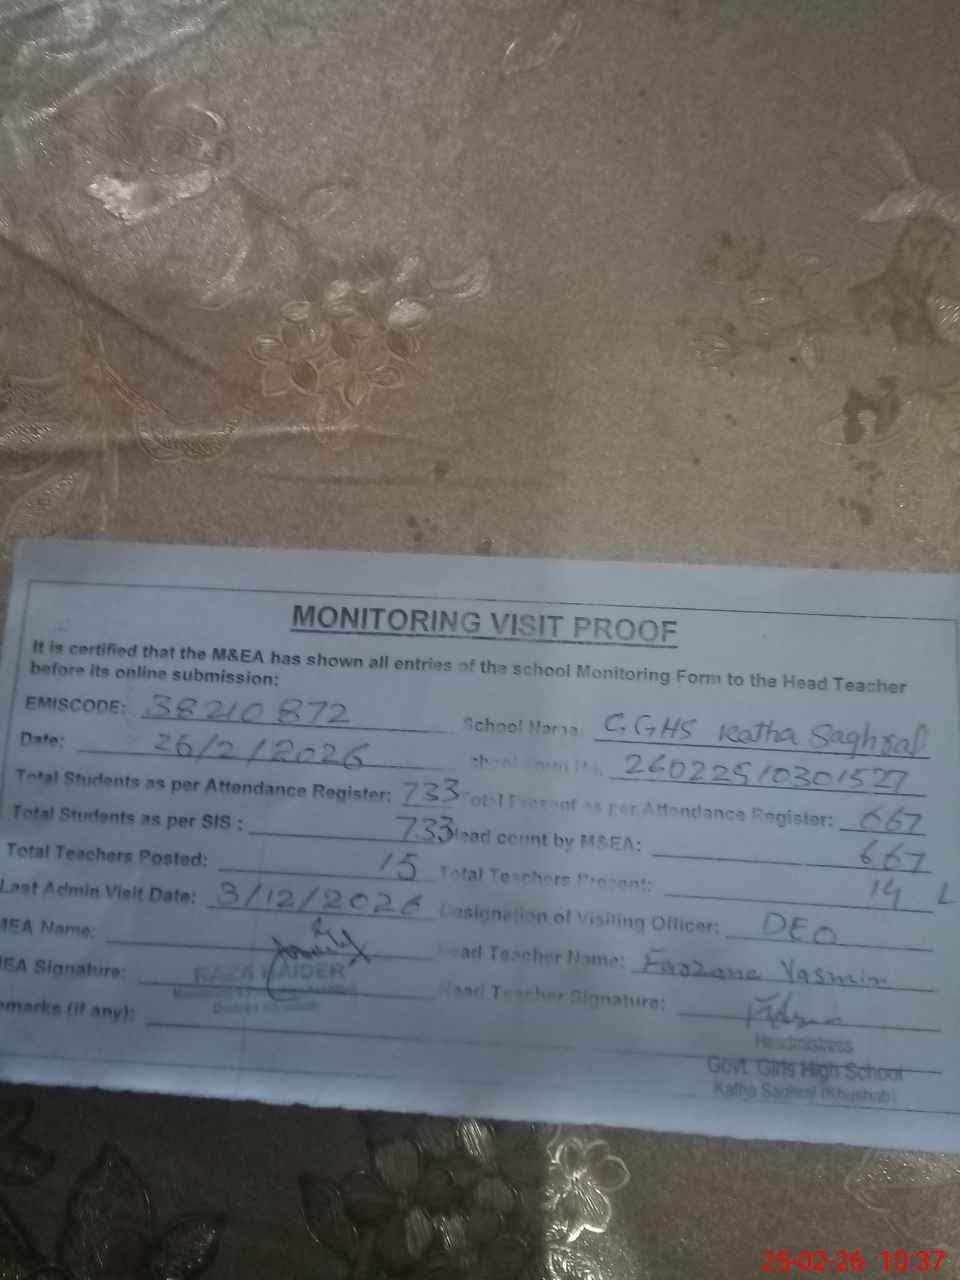 MONITORING VISIT PROOF
It is certified that the M&EA has shown all entries of the school Monitoring Form to the Head Teacher
before its online submission:
EMISCODE: 38210872 School Name GGHS Katha Saghral
Date: 26/2/2026 26022510301527
Total Students as per Attendance Register: 733 Total Present as per Attendance Register: 667
Total Students as per SIS : 733 Head count by M&EA: 667
Total Teachers Posted: 15 Total Teachers Present: 14 L
Last Admin Visit Date: 3/12/2026 Designation of Visiting Officer: DEO
MEA Name: Head Teacher Name: Farzana Yasmin
MEA Signature: RAZA HAIDER Head Teacher Signature:
emarks (if any):
Headmistress
Govt. Girls High School
Katha Saghral (Khushab)
25-02-26 10:37